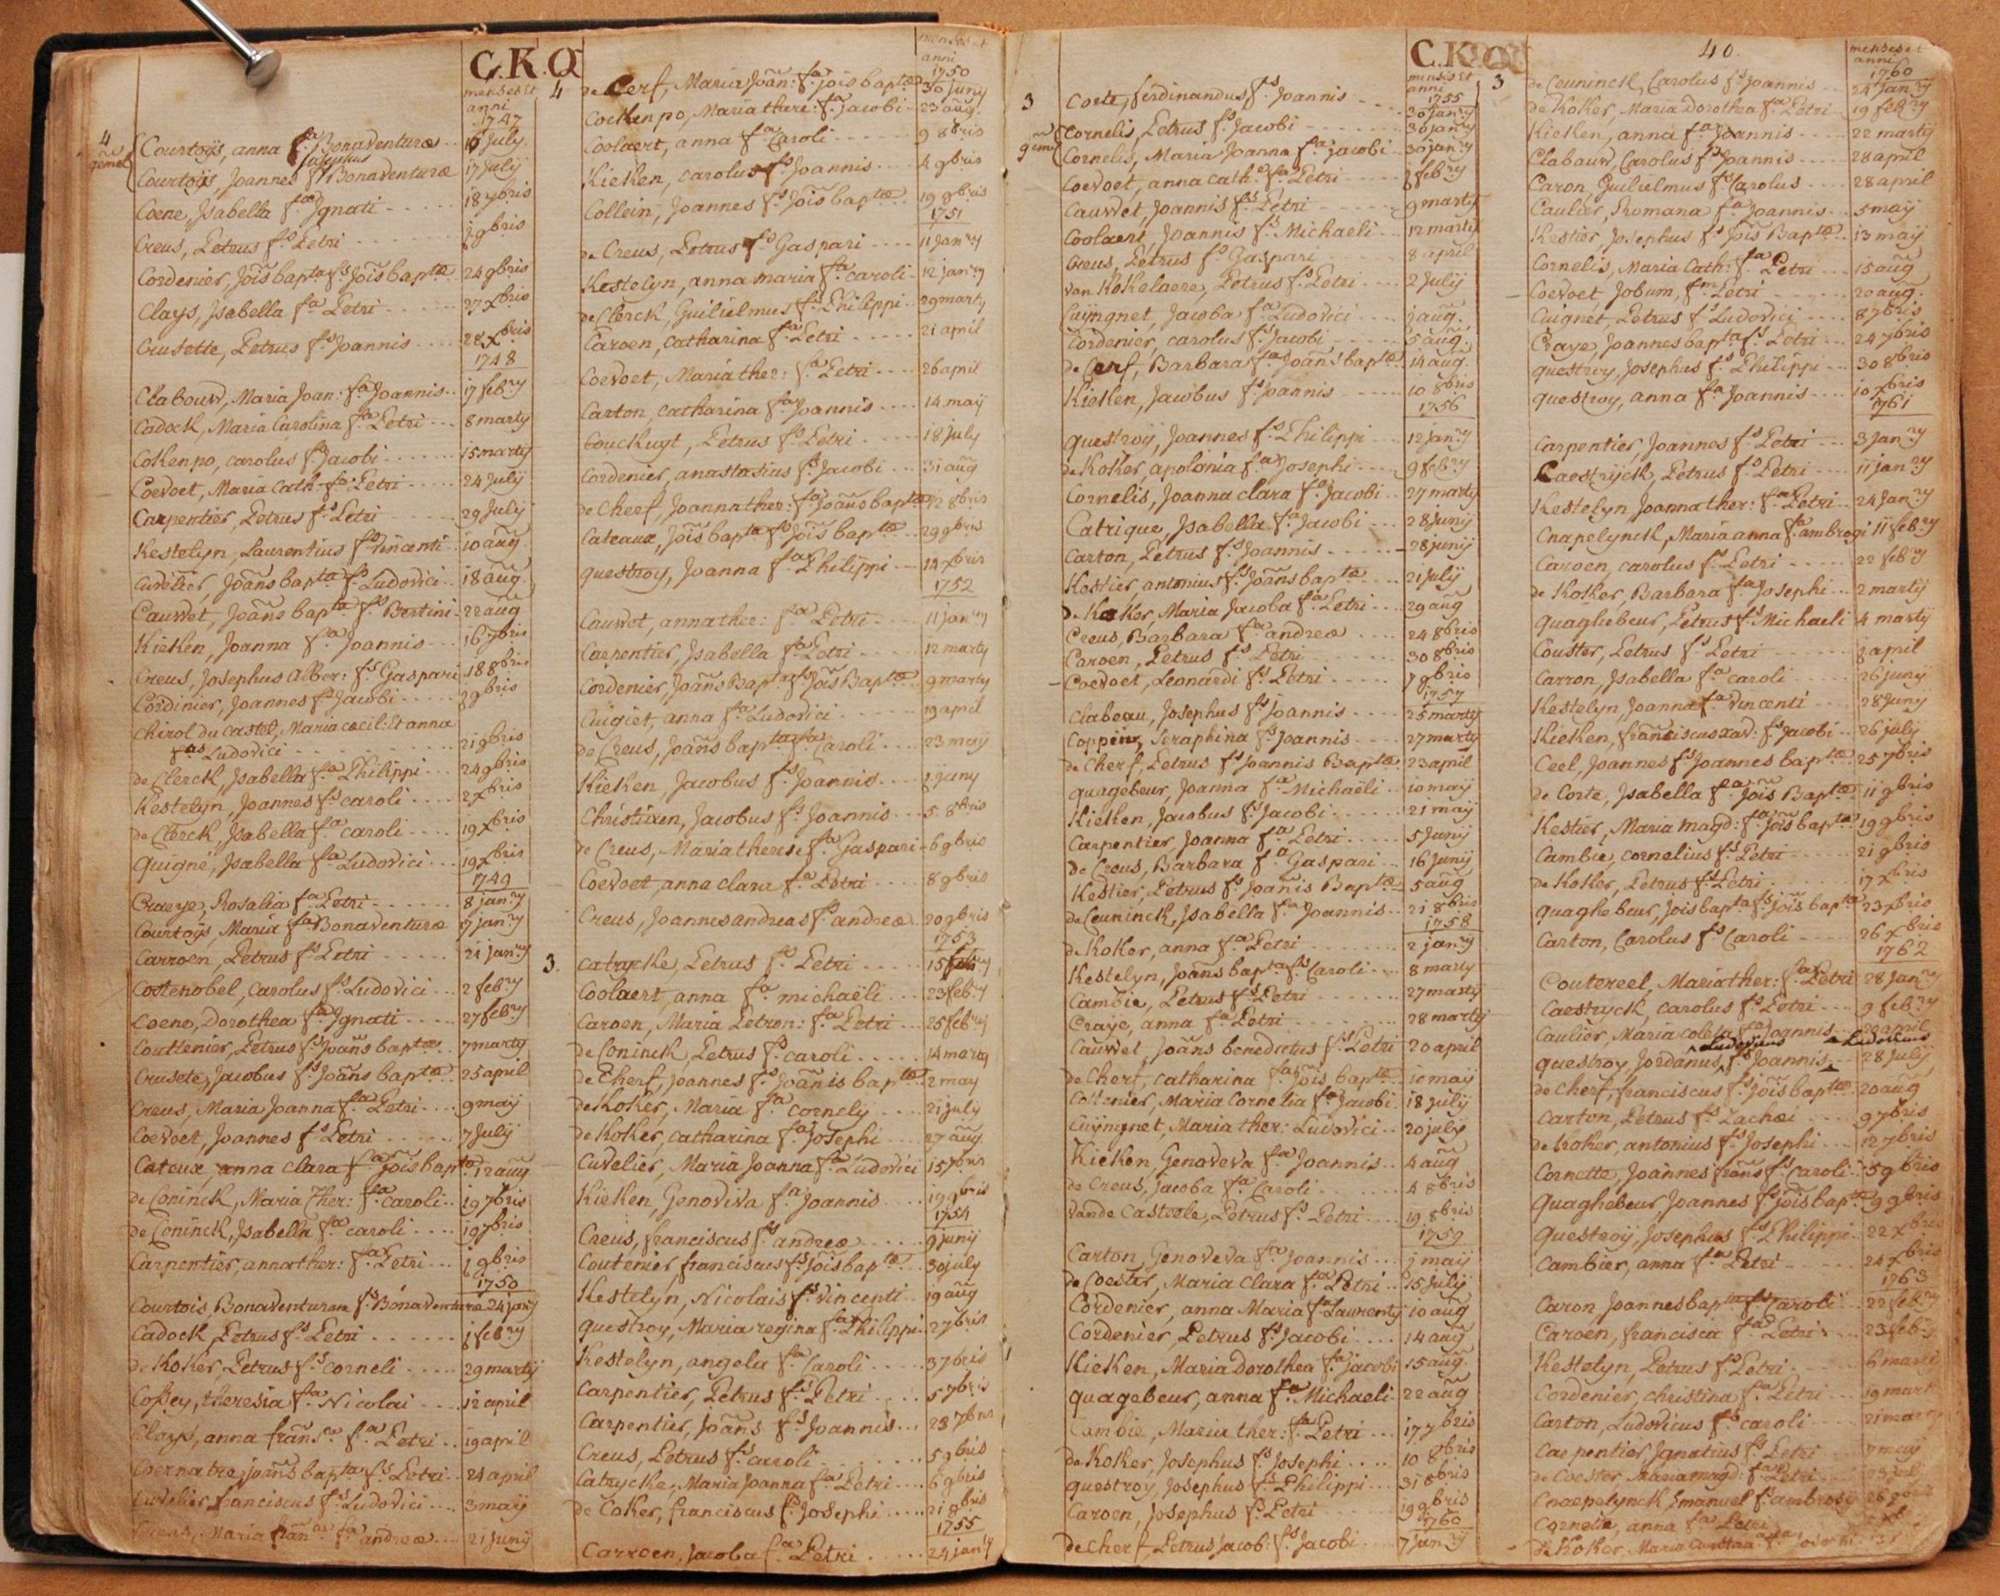 C.K.Q
menses et
anni
1747
4
gem̃el
Courtoÿs, anna fa Bonaventuræ 16 July
Courtoÿs, Joannes josephus fs Bonaventuræ 17 julÿ
Coene, Jsabella fa Jgnati 18 7bris
Creus, Petrus fs Petri j 9bris
Cordenier, Joĩs bapta fs Joĩs baptæ 24 9bris
Clays, Jsabella fa Petri 27 xbris
Crusette, Petrus fs Joannis 28 xbris
1748
Clabouw, Maria Joan: fa Joannis 17 febry
Cadock, Maria Carolina fa Petri 8 marty
Cokenpo, carolus fs Jacobi 15 marty
Coevoet, Maria Cath: fa Petri 24 July
Carpentier, Petrus fs Petri 29 July
Kestelyn, Laurentius fs Vincenti 10 aug̃
Cuvelier, Joañs bapta fs Ludovici 18 aug̃
Cauwet, Joañs bapta fs Bertini 22 aug̃
Kieken, Joanna fa Joannis 16 7bris
Creus, Josephus Alber: fs Gaspari 18 8bris
Cordinier, Joannes fs Jacobi j 9bris
Chirol du Castel, Maria cæcil: et anna
fas Ludovici 21 9bris
de Clerck, Jsabella fa Philippi 24 9bris
Kestelyn, Joannes fs caroli 2 xbris
de Clerck, Jsabella fa caroli 19 xbris
Quigné, Jsabella fa Ludovici 19 xbris
1749
Craeye, Rosalia fa Petri 8 janry
Courtoÿs, Maria fa Bonaventuræ 9 janry
Carroen, Petrus fs Petri 21 janry
Costenobel, carolus fs Ludovici 2 febry
Coene, Dorothea fa Jgnati 27 febry
Couttenier, Petrus fs Joañs baptæ 7 marty
Crusete, Jacobus fs Joañs baptæ 25 april
Creus, Maria Joanna fa Petri 9 maij
Coevoet, Joannes fs Petri 7 July
Cateux, anna clara fa Joĩs bapta 12 aug̃
de Coninck, Maria Ther: fa caroli 19 7bris
de Coninck, Jsabella fa caroli 19 7bris
Carpentier, anna ther: fa Petri j 9bris
1750
Courtois Bonaventuram fs Bonaventuræ 24 janry
Cadock Petrus fs Petri j febry
de Koker, Petrus fs corneli 29 marty
Copey, theresia fa Nicolai 12 april
Clays, anna frañsa fa Petri 19 april
Coernatre, joañs bapta fs Petri 24 april
Cuvelier franciscus fs Ludovici 3 maij
Creus, Maria frañas fa andreæ 21 Junÿ
4
menses et
anni
1750
de Cerf, Maria Joan̄: fa Joĩs baptæ 30 Juny
Cockenpo, Maria there: fa Jacobi 23 aug̃
Coolaert, anna fa Caroli 9 8bris
Kieken, carolus fs Joannis 4 9bris
Collein, Joannes fs Joĩs baptæ 19 9bris
1751
de Creus, Petrus fs Gaspari 11 Janry
Kestelyn, anna maria fa caroli 12 janry
de Clerck, Guilielmus fs Philippi 29 marty
Caroen, catharina fa Petri 21 april
Coevoet, Maria ther: fa Petri 26 april
Carton, catharina fa Joannis 14 maij
bouckuyt, Petrus fs Petri 18 July
Cordenier, anastasius fs Jacobi 31 aug̃
de Cherf, Joanna ther: fa Joañs baptæ 12 8bris
Cateaux, Joĩs bapta fs Joĩs baptæ 29 9bris
questroy, Joanna fa Philippi 14 xbris
1752
Cauwet, anna ther: fa Petri 11 janry
Carpentier, Jsabella fa Petri 12 marty
Cordenier, Joañs Bapta fs Joĩs Baptæ 9 marty
Cuigiet, anna fa Ludovici 19 april
de Creus, Joañs bapta fs Caroli 23 maij
Kieken, Jacobus fs Joannis j juny
Christixen, Jacobus fs Joannis 5 8bris
de Creus, Maria theresi fa Gaspari 6 9bris
Coevoet, anna clara fa Petri 8 9bris
Creus, Joannes andreas fs andreæ 20 9bris
1753
3
Catrycke, Petrus fs Petri 15 febry
Coolaert, anna fa michaëli 23 febry
Caroen, Maria Petron: fa Petri 25 febry
de Coninck, Petrus fs caroli 14 marty
de Cherf, Joannes fs Joañis baptæ 2 may
de Koker, Maria fa cornely 21 july
de Koker, catharina fa Josephi 27 aug̃
Cuvelier, Maria Joanna fa Ludovici 15 7bris
Kieken, Genoviva fa Joannis 19 9bris
1754
Creus, franciscus fs andreæ 9 junij
Coutenier franciscus fs Joĩs baptæ 30 july
Kestelyn, Nicolais fs Vincenti 19 aug̃
questroy, Maria regina fa Philippi 2 7bris
Kestelyn, angela fa Caroli 3 7bris
Carpentier, Petrus fs Petri 5 7bris
Carpentier, Joañs fs Joannis 28 7bris
Creus, Petrus fs caroli 5 9bris
Catrycke, Maria Joanna fa Petri 6 9bris
de Coker, franciscus fs Josephi 21 9bris
1755
Carroen, Jacoba fa Petri 24 janry
C.K.Q
menses et
anni
1755
3
Corte, ferdinandus fs Joannis 20 janry
gem̃el
Cornelis, Petrus fs Jacobi 30 janry
Cornelis, Maria Joanna fa jacobi 30 janry
Coevoet, anna cath: fa Petri j febry
Cauwet, Joannis fs Petri 9 marty
Coolaert, Joannis fs Michaeli 12 marty
Creus, Petrus fs Gaspari 8 april
van Kokelaere, Petrus fs Petri 2 Julij
Cuyngnet, Jacoba fa Ludovici j aug.
Cordenier, carolus fs Jacobi 5 aug.
de Cerf, Barbara fa Joañs baptæ 14 aug̃
Kieken, Jacobus fs joannis 10 8bris
1756
questroÿ, Joannes fs Philippi 12 janry
de Koker, apolonia fa Josephi 9 febry
Cornelis, Joanna clara fa Jacobi 27 marty
Catrique, Jsabella fa Jacobi 28 junij
Carton, Petrus fs Joannis 28 junij
Kestier, antonius fs Joañs baptæ 21 Julij
de Koker, Maria Jacoba fa Petri 29 aug̃
Creus, Barbara fa andreæ 24 8bris
Caroen, Petrus fs Petri 30 8bris
Coevoet, Leonardi fs Petri 7 9bris
1757
Clabeau, Josephus fs Joannis 25 marty
Coppens, Seraphina fs Joannis 27 marty
de Cherf, Petrus fs Joannis Baptæ 23 april
quagebeur, Joanna fa Michaëli 10 may
Kieken, Jacobus fs Jacobi 21 maij
Carpentier, Joanna fa Petri 5 Junij
de Creus, Barbara fa Gaspari 16 Junij
Kestier, Petrus fs Joañis Baptæ 5 aug̃
de Ceuninck, Jsabella fa Joannis 21 8bris
1758
de Koker, anna fa Petri 2 janry
Kestelyn, Joañs bapta fs Caroli 8 marty
Cambie, Petrus fs Petri 27 marty
Craye, anna fa Petri 28 marty
Cauwet, Joañs benedictus fs Petri 20 april
de Cherf, catharina fa Joĩs baptæ 10 maij
Cottenier, Maria Cornelia fa Jacobi 18 July
Cuÿngnet, Maria ther: Ludovici 20 july
Kieken Genoveva fa Joannis 4 aug̃
de Creus, Jacoba fa Caroli 4 8bris
vande Casteele, Petrus fs Petri 19 8bris
1759
Carton, Genoveva fa Joannis j maij
de Coester, Maria Clara fa Petri 15 July
Cordenier, anna Maria fa Laurenty 10 aug̃
Cordenier, Petrus fs Jacobi 14 aug̃
Kieken, Maria Dorothea fa jacobi 15 aug.
quagebeur, anna fa Michaeli 22 aug̃
Cambie, Maria ther: fa Petri 17 7bris
de Koker, Josephus fs Josephi 10 8bris
questroy, Josephus fs Philippi 31 8bris
Caroen, Josephus fs Petri 19 9bris
1760
de Cherf Petrus Jacob: fs Jacobi 7 Janry
3
40.
menses et
anni
1760
de Ceuninck, Carolus fs Joannis 24 Janry
de Koker, Maria Dorothea fa Petri 19 febry
Kieken, anna fa Joannis 22 marty
Clabauw Carolus fs Joannis 28 april
Caron, Guilielmus fs Carolus 28 april
Caulier, Romana fa Joannis 5 maÿ
Kestier Josephus fs Joĩs Baptæ 13 maij
Cornelis, Maria Cath: fa Petri 15 aug̃
Coevoet Jobum, fm Petri 20 aug.
Cuignet, Petrus fs Ludovici 8 7bris
Craye, Joannes bapta fs Petri 24 7bris
questroy, Josephus fs Philippi 30 8bris
questroy, anna fa Joannis 10 xbris
1761
Carpentier Joannes fs Petri 3 Janry
Caestryck, Petrus fs Petri 11 janry
Kestelyn Joanna ther: fa Petri 24 Janry
Cnapelynck, Maria anna fa ambrogi 11 febry
Caroen, carolus fs Petri 22 febry
de Koker, Barbara fa Josephi 2 martij
Quaghebeur, Petrus fs Michaeli 4 martij
Couster, Petrus fs Petri j april
Carron, Jsabella fa caroli 26 junij
Kestelyn, Joanna fa Vincenti 28 Junij
Kieken, frañciscus xav: fs Jacobi 26 july
Ceel, Joannes fs Joannes baptæ 25 7bris
de Corte, Jsabella fa Joĩs Baptæ 11 9bris
Kestier, Maria Magd: fa Joĩs baptæ 19 9bris
Cambie, cornelius fs Petri 21 9bris
de Koker, Petrus fs Petri 17 xbris
quaghebeur, Joĩs bapta fs Joĩs bapta 23 xbris
Carton, Carolus fs Caroli 26 xbris
1762
Coutereel, Maria ther: fa Petri 28 Janry
Caestryck, carolus fs Petri 9 febry
Caulier, Maria coleta fa Joannis 28 april
Ludovicus Ludovicus
questroy Jordanus fs Joannis 28 julij
de Cherf, franciscus fs Joĩs baptæ 20 aug̃
Carton, Petrus fs Zachæi 9 7bris
de Koker, antonius fs Josephi 12 7bris
Cornette, Joannes frañs fs Caroli 5 9bris
Quaghebeur Joannes fs Joĩs baptæ 9 9bris
Questroÿ, Josephus fs Philippi 22 xbris
Cambier, anna fa Petri 24 xbris
1763
Caron Joannes bapta fs Caroli 22 febry
Caroen, francisca fa Petri 23 febry
Kestelyn, Petrus fs Petri 6 marti
Cordenier, Christina fa Petri 19 mart
Carton, Ludovicus fs caroli 21 marty
Carpentier Jgnatius fs Petri 7 maij
de Coester Maria magd: fa Petri
Cnaepelynck Emanuel fs ambrosÿ
Cornelie, anna fa Petri
de Koker Maria